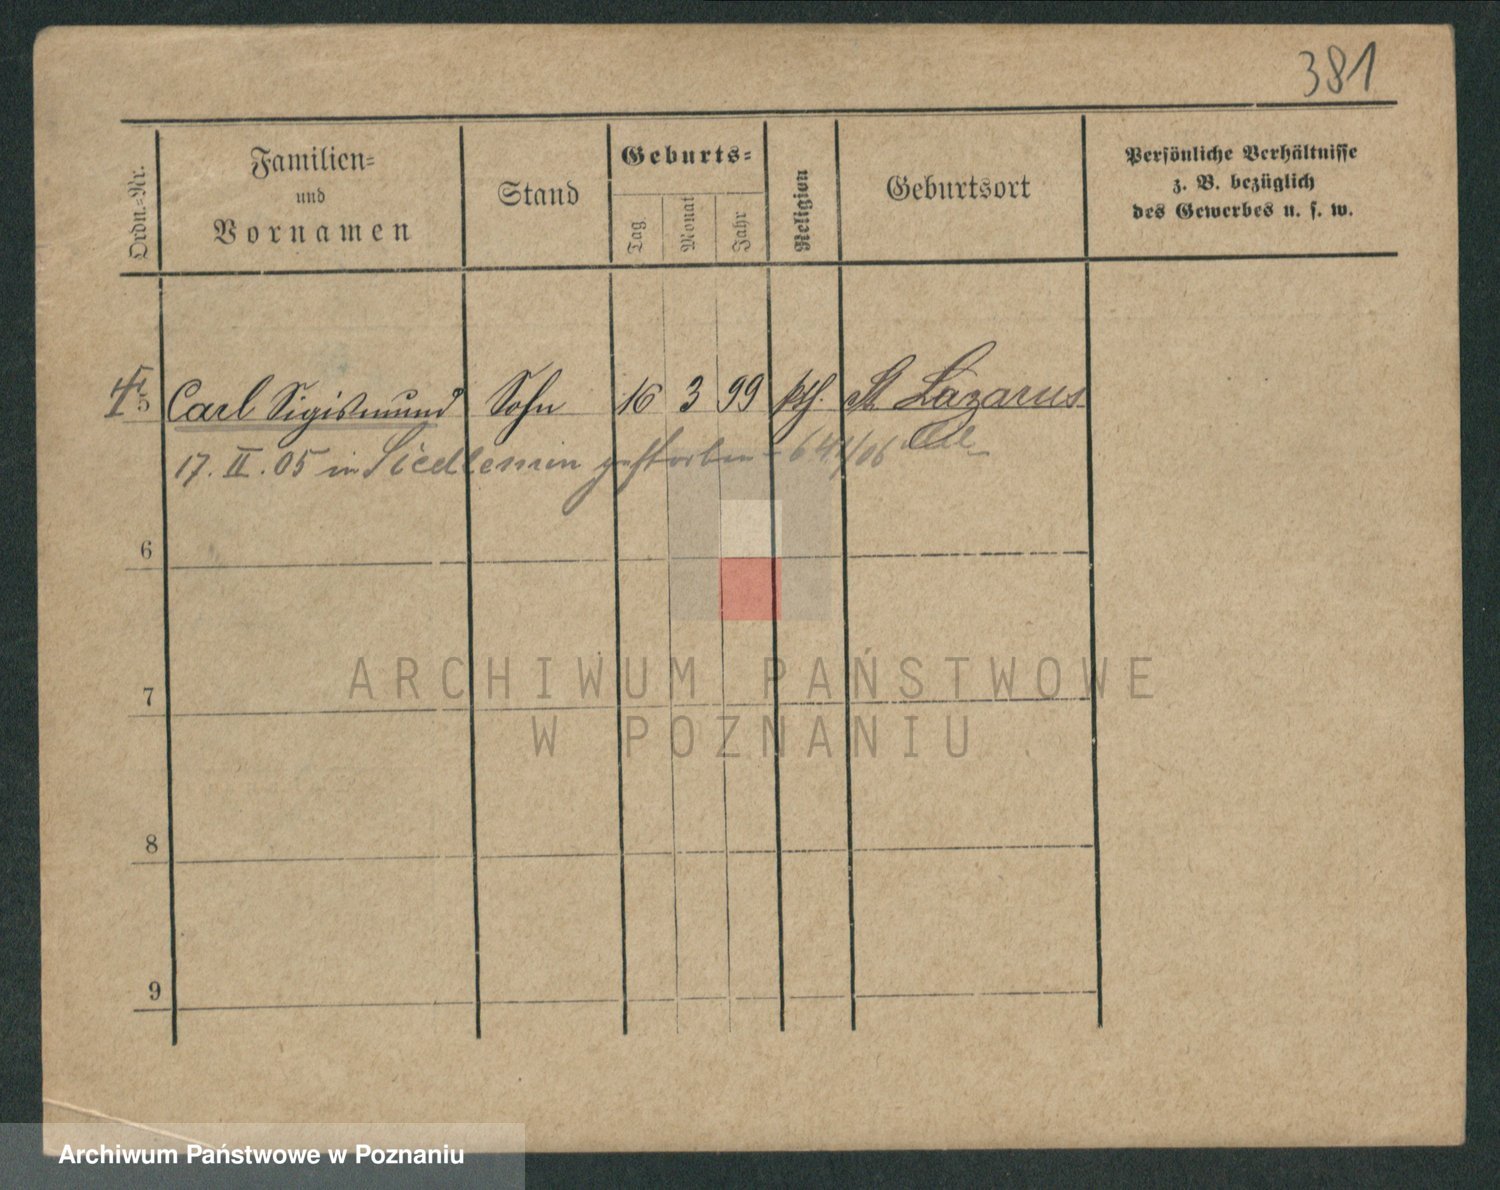 381
Ordn.-Nr.
Familien-
und
Vornamen
Stand
Geburts-
Tag
Monat
Jahr
Religion
Geburtsort
Persönliche Verhältnisse
z. B. bezüglich
des Gewerbes u. s. w.
5 Carl Sigismund Sohn 16 3 99 kth. St Lazarus
17. II. 05 in Siedlemin gestorben
6
7
8
9
ARCHIWUM PAŃSTWOWE
W POZNANIU
Archiwum Państwowe w Poznaniu